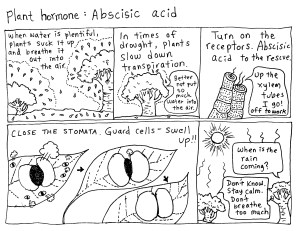 Plant hormone: Abscisic acid
When water is plentiful,
plants suck it up
and breathe it
out into
the air.
In times of
drought, plants
slow down
transpiration.
Better
not put
so much
water into
the air.
Turn on the
receptors. Abscisic
acid to the rescue.
Up the
xylem
tubes
I go!
off to work
CLOSE THE STOMATA. Guard cells - Swell
up!!
When is the
rain
coming?
Don't know.
Stay calm.
Don't
breathe
too much